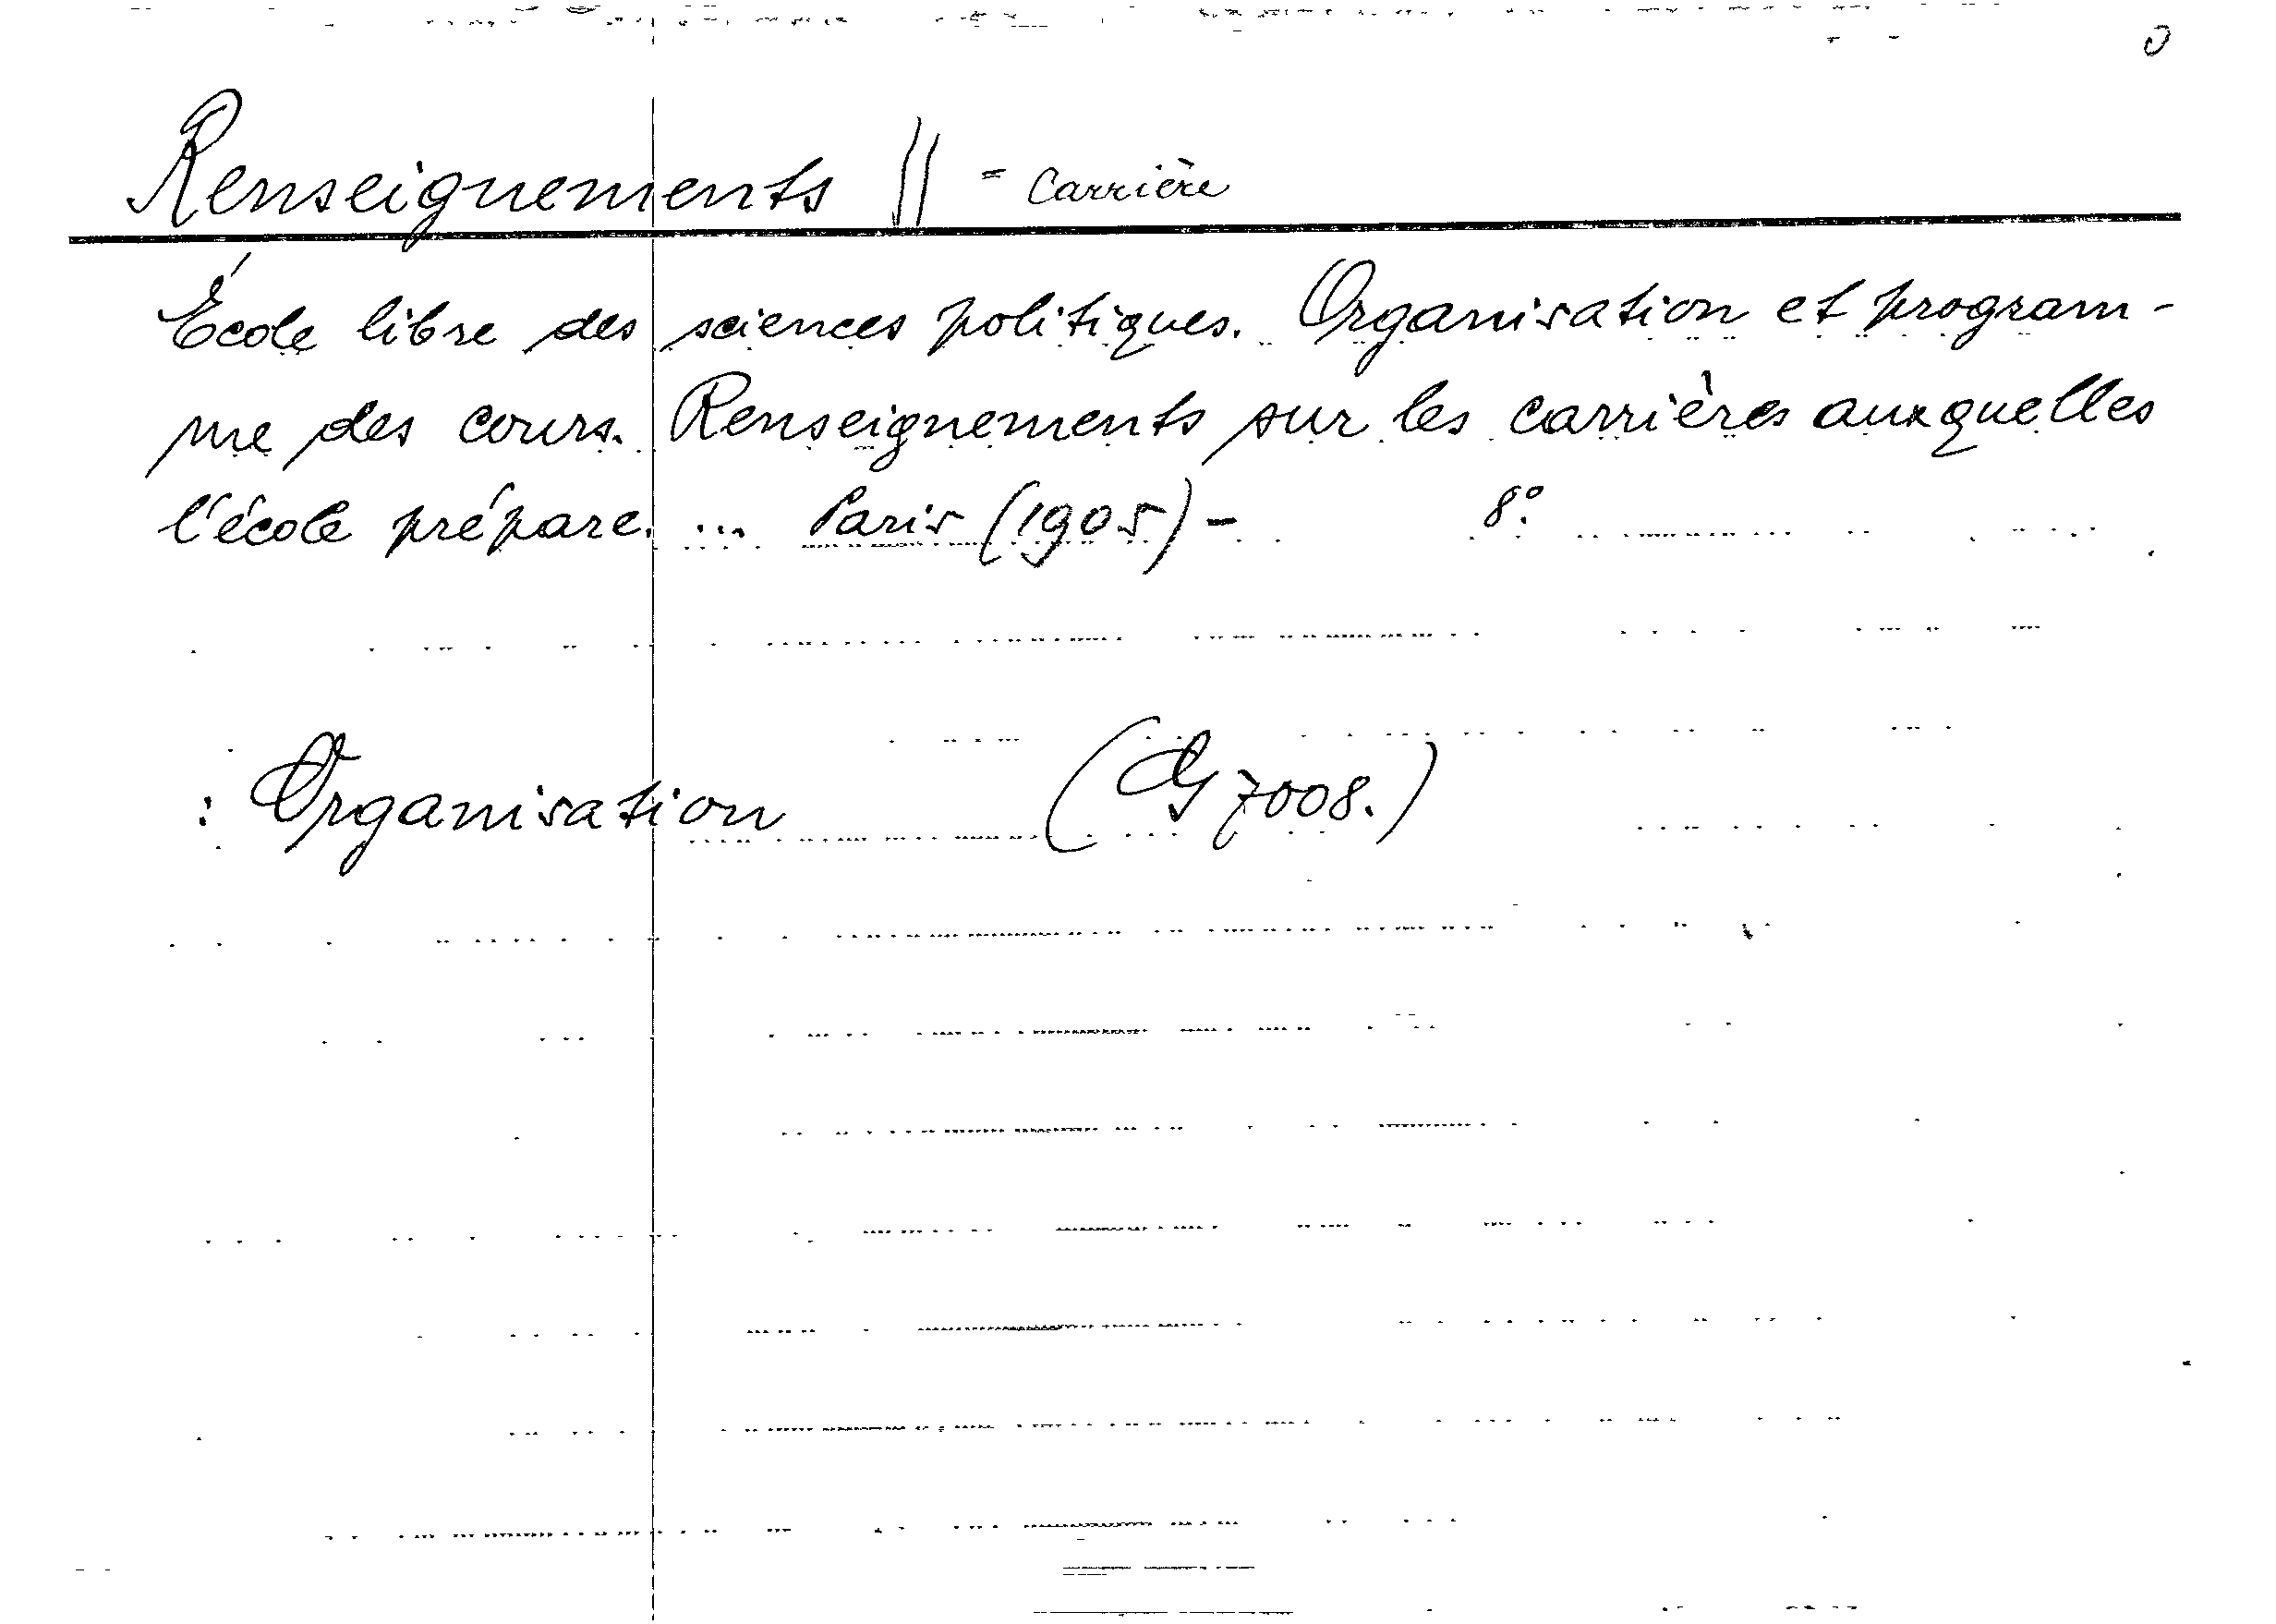 Renseignements || = Carrière
École libre des sciences politiques. Organisation et program-
me des cours. Renseignements sur les carrières auxquelles
l'école prépare. ... Paris (1905) - 8°.
: Organisation (G 7008.)